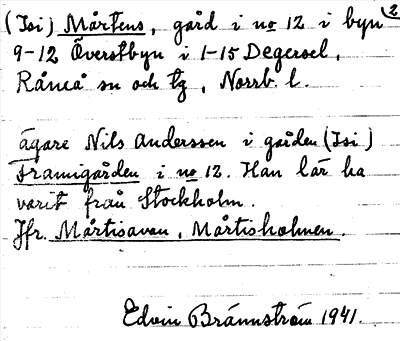 2
(Isi) Mårtens, gård i no 12 i byn
9-12 Överstbyn i 1-15 Degersel,
Råneå sn och tg, Norrb. l.
ägare Nils Anderssen i gården (Isi)
Framigården i no 12. Han lär ha
varit från Stockholm.
Jfr. Mårtisavan, Mårtisholmen.
Edvin Brännström 1941.